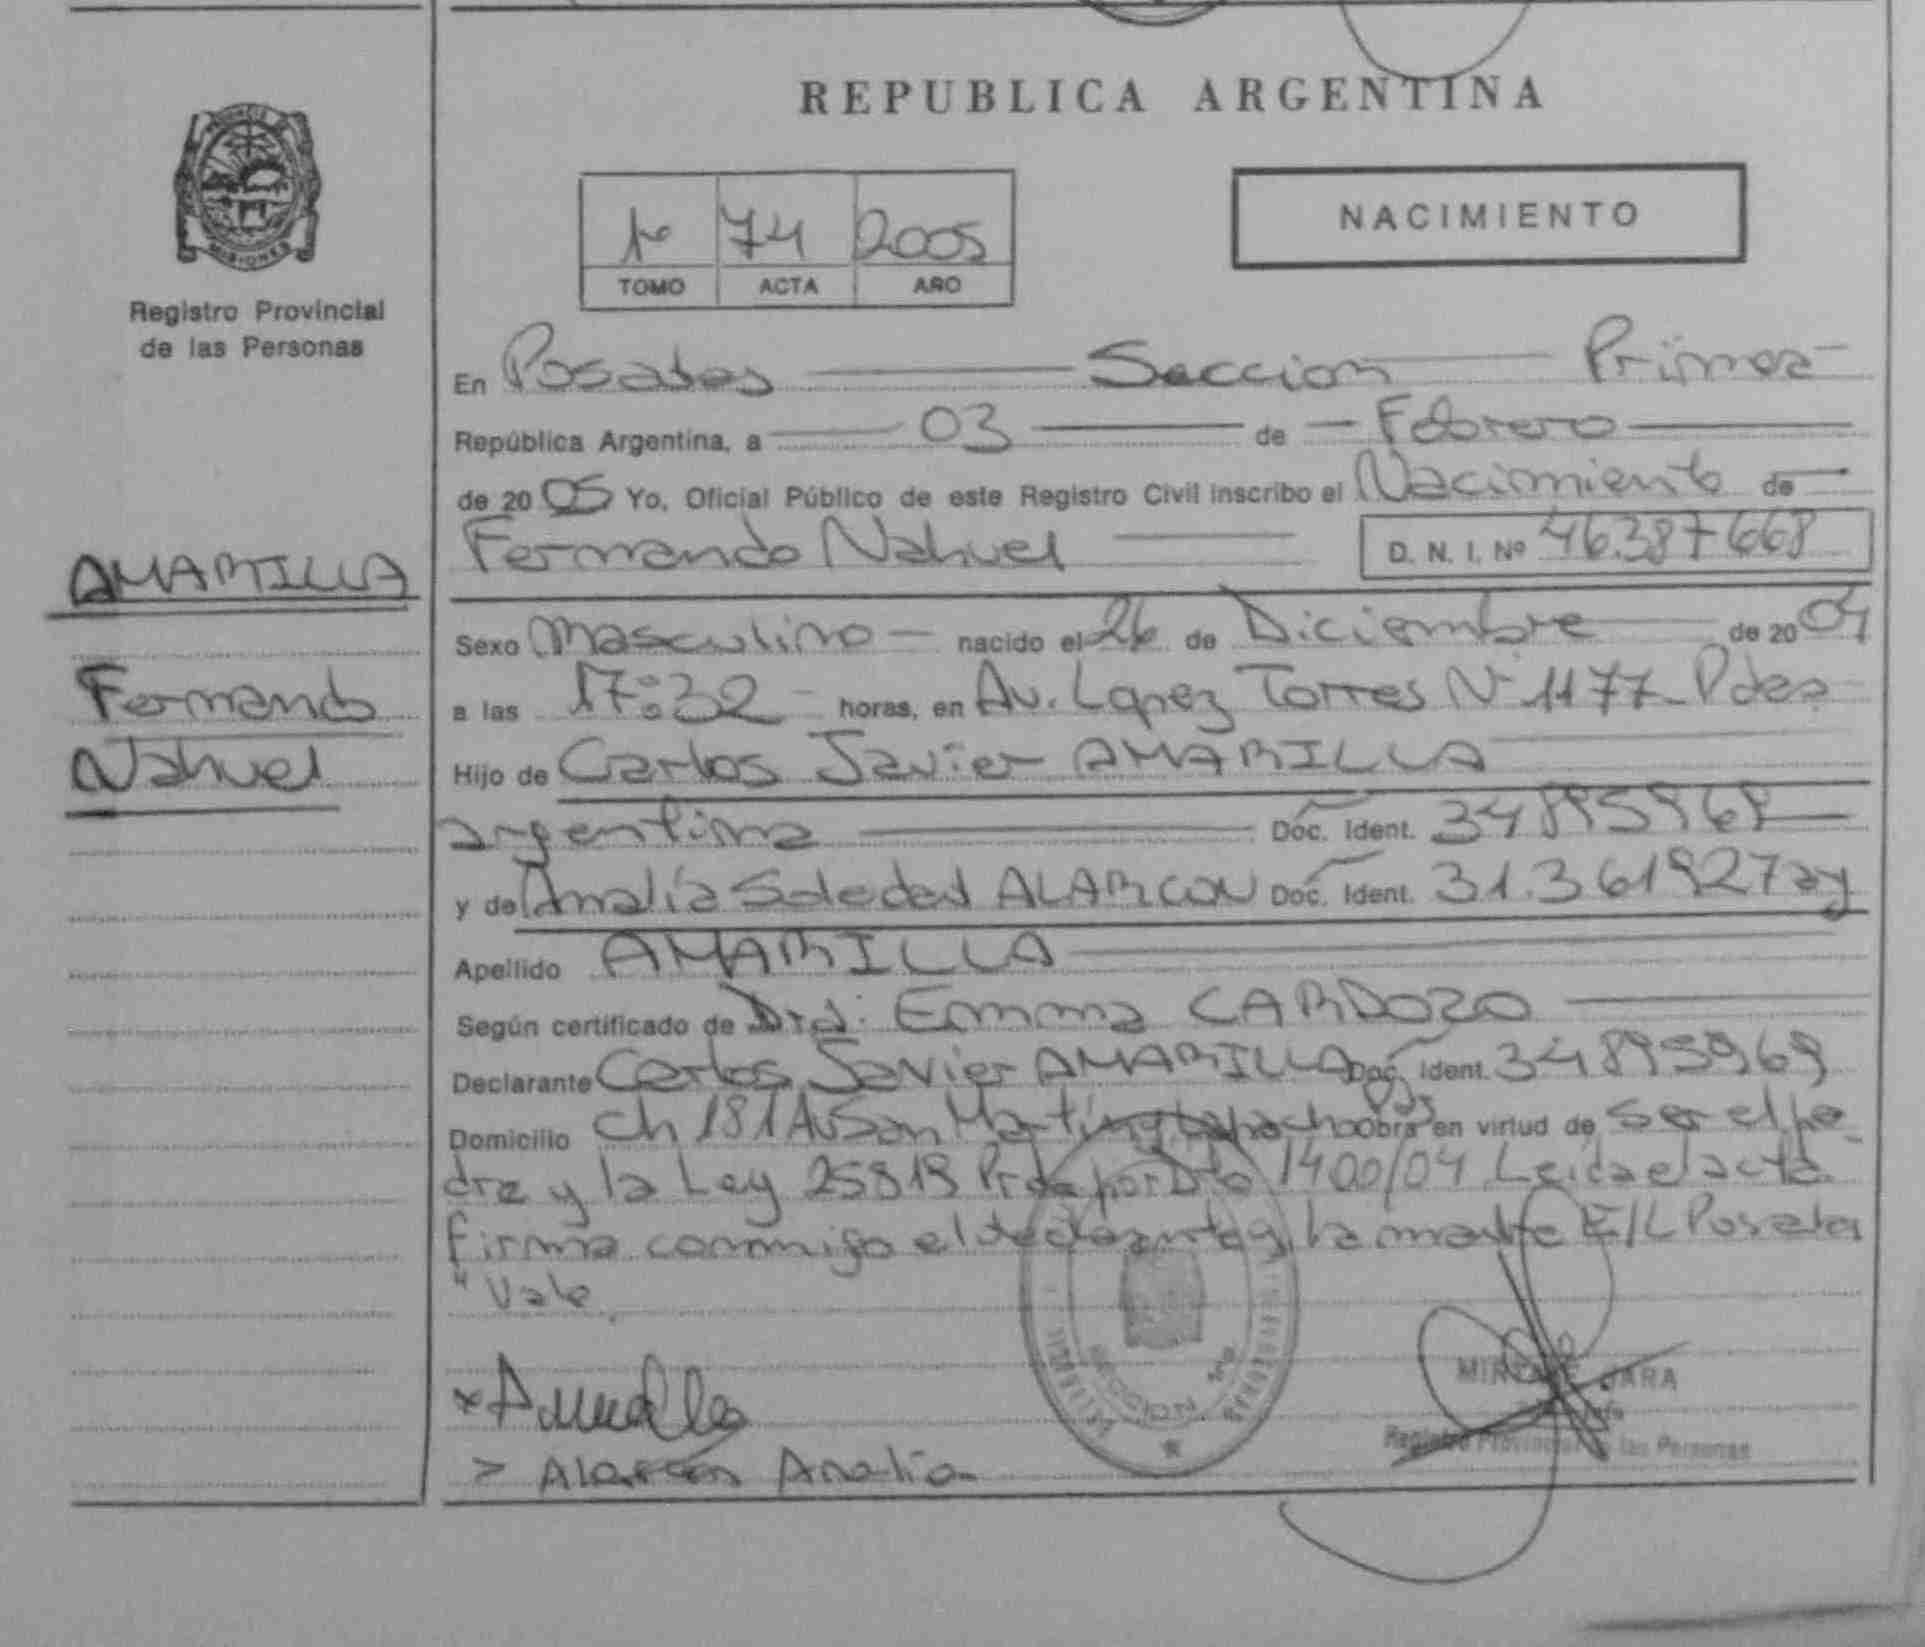 REPUBLICA ARGENTINA
MISIONES
Registro Provincial
de las Personas
1º 74 2005
TOMO ACTA AÑO
NACIMIENTO
En Posadas Seccion Primera
República Argentina, a 03 de Febrero
de 2005 Yo, Oficial Público de este Registro Civil inscribo el Nacimiento de
Fernando Nahuel D. N. I. Nº 46.387668
AMARILLA
Fernando
Nahuel
Sexo Masculino nacido el 26 de Diciembre de 2004
a las 17:32 horas, en Av. Lopez Torres Nº 1177 - Pdas
Hijo de Carlos Javier AMARILLA
argentina Doc. Ident.
y de Analía Soledad ALARCON Doc. Ident. 31.361927
Apellido AMARILLA
Según certificado de Dra. Emma CARDOZO
Declarante Carlos Javier AMARILLA Doc. Ident. 34895969
Domicilio Ch 181 Av San Martin y Obra en virtud de ser el pa
dre y la Ley 25819 1400/04 Leida el acta
firma conmigo el declarante y la madre E/L Posadas
" Vale
Alarcón Analia
SECCION 1ra
JARA
Registro Provincial de las Personas